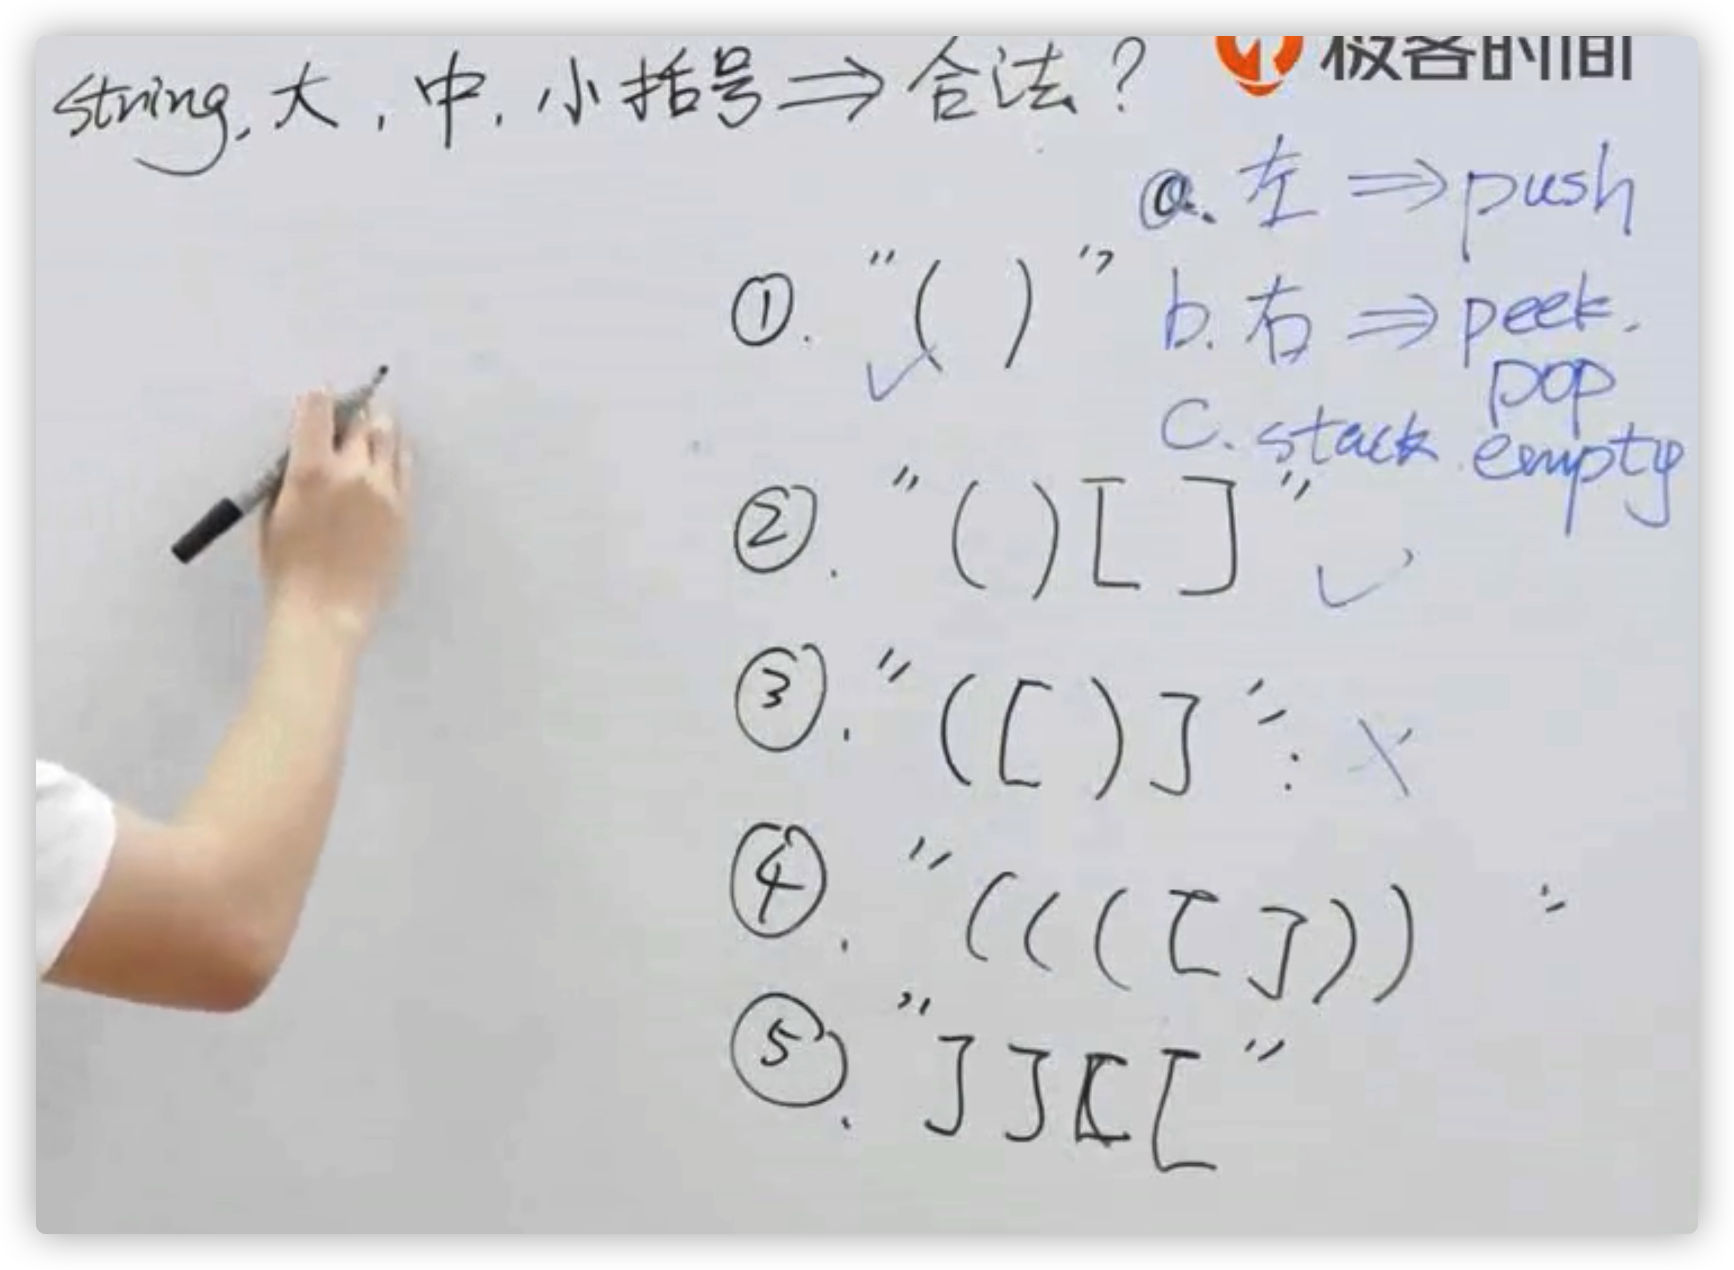 极客时间
string, 大, 中, 小括号 ⇒ 合法?
a. 左 ⇒ push
b. 右 ⇒ peek.
pop
c. stack empty
①. "( )" ✓
②. "( ) [ ]" ✓
③. "( [ ) ]": ✗
④. "( ( ( [ ] ) ) "
⑤. "] ] [ ["